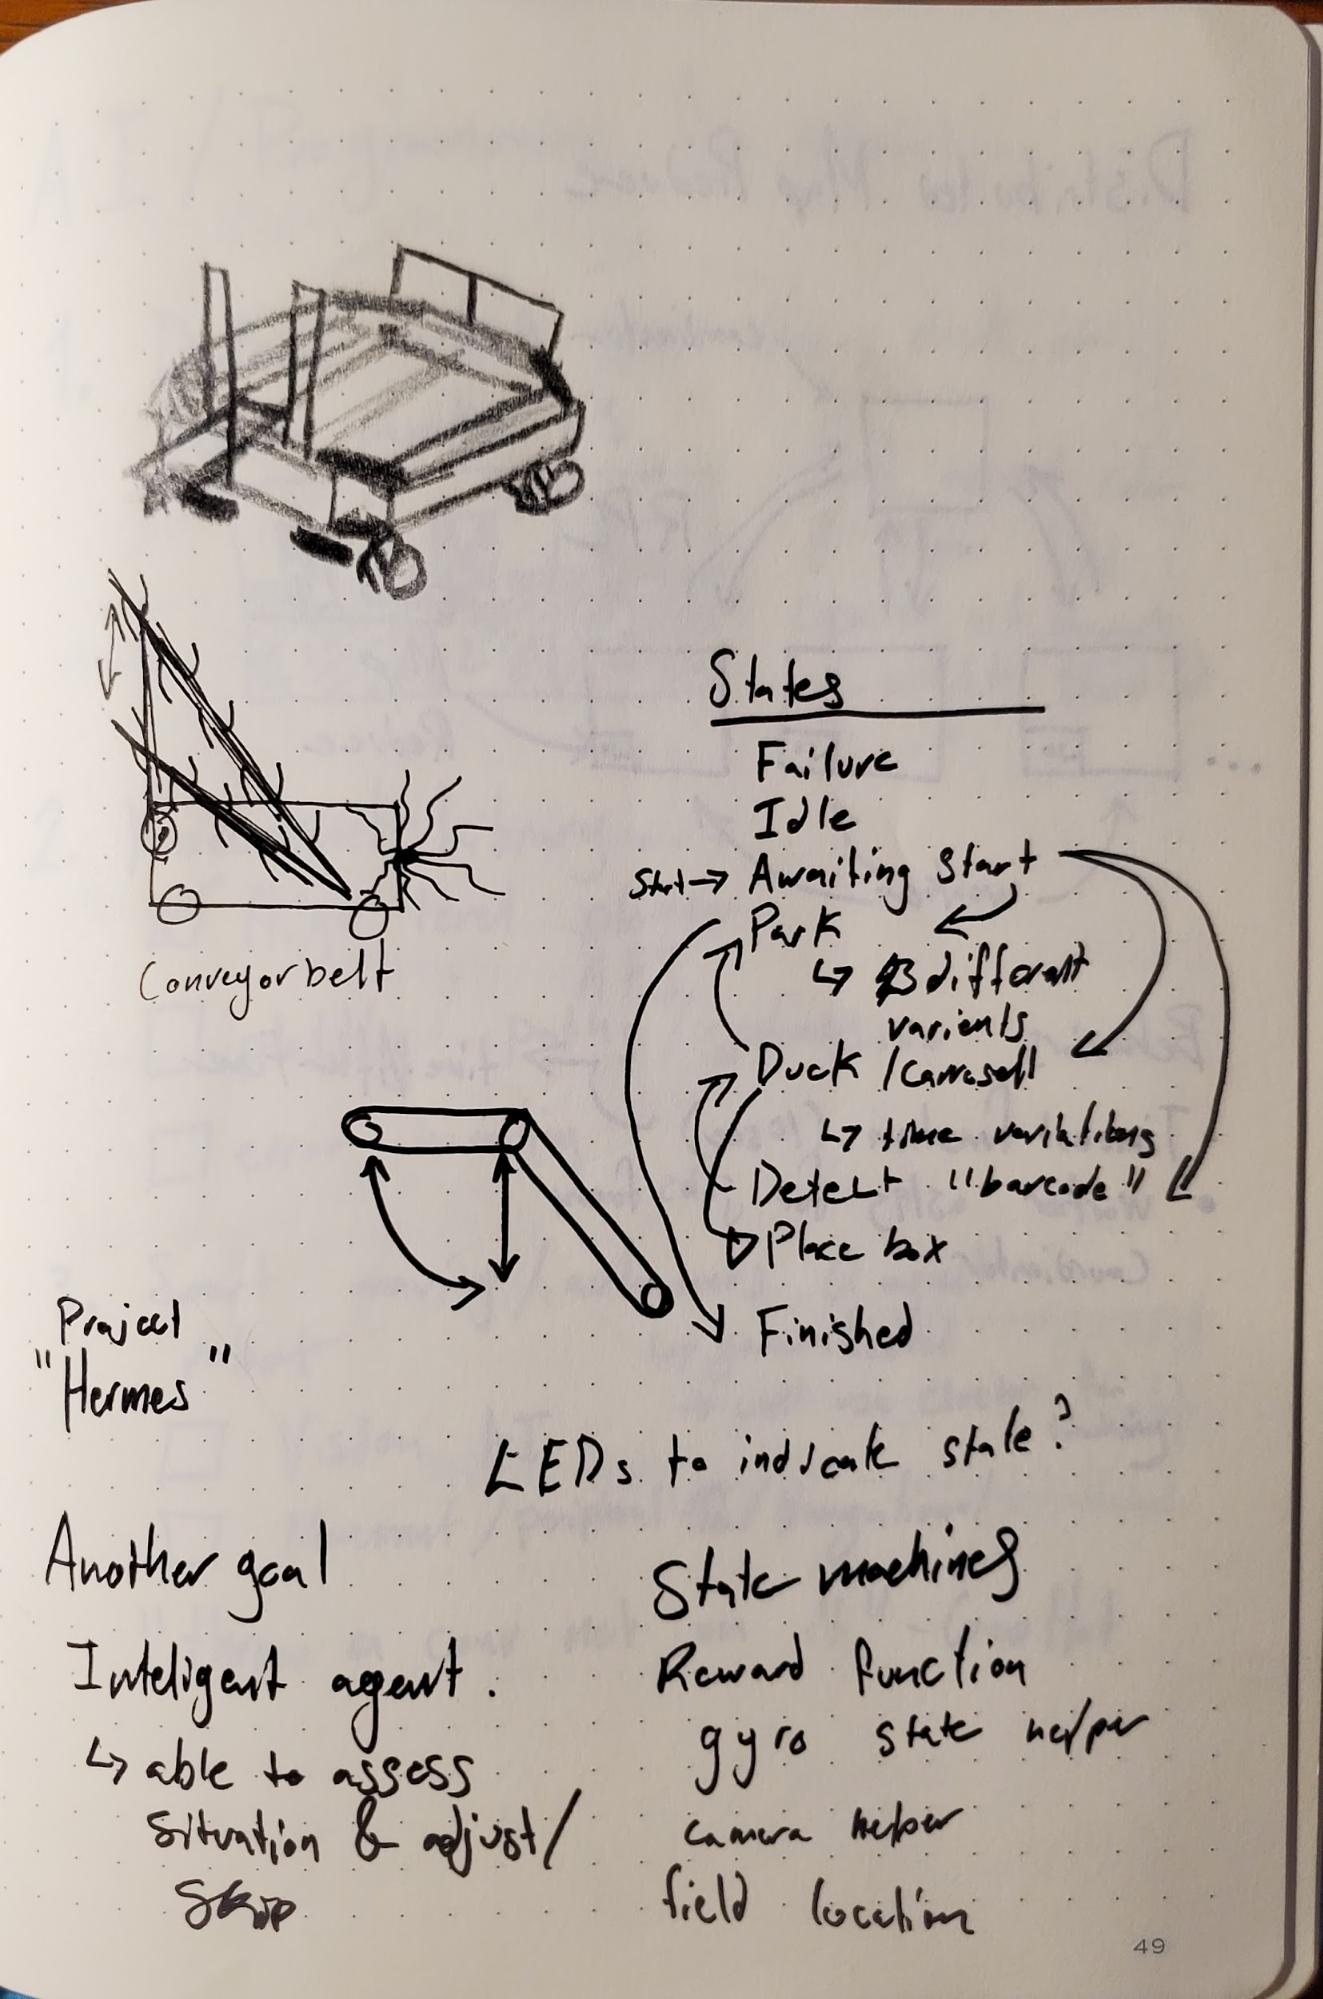 States
Failure
Idle
Start → Awaiting start
Park
↳ 3 different
varients
Duck / Carrosell
↳ time
Detect "barcode"
Place box
Finished
Conveyor belt
Project
"Hermes"
LEDs to indicate state?
Another goal
Inteligent agent.
↳ able to assess
situation & adjust/
Skip
State machines
Reward function
gyro state helper
camera helper
field location
49
Distributed Map Reduce